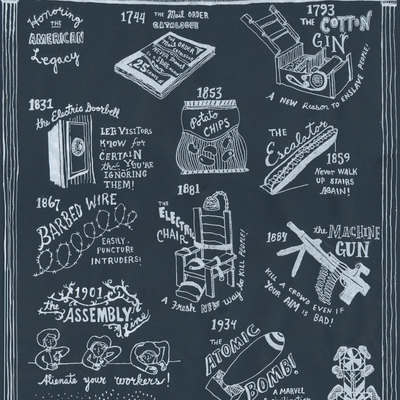 Honoring
THE
AMERICAN
Legacy
1744
The MAIL ORDER
CATALOGUE
MAIL ORDER
25 CENTS
1793
THE COTTON
GIN
A NEW REASON TO ENSLAVE PEOPLE!
1831
the Electric Doorbell
LET VISITORS
KNOW FOR
CERTAIN
that YOU'RE
IGNORING
THEM!
1853
Potato
CHIPS
THE
Escalator
1859
NEVER WALK
UP STAIRS
AGAIN!
1867
BARBED WIRE
EASILY
PUNCTURE
INTRUDERS!
1881
THE ELECTRIC
CHAIR
A FRESH NEW WAY to KILL PEOPLE!
1884
the MACHINE
GUN
KILL A CROWD EVEN IF
YOUR AIM IS BAD!
1901
the ASSEMBLY
Line
Alienate your workers!
1934
THE
ATOMIC
BOMB!
A MARVEL